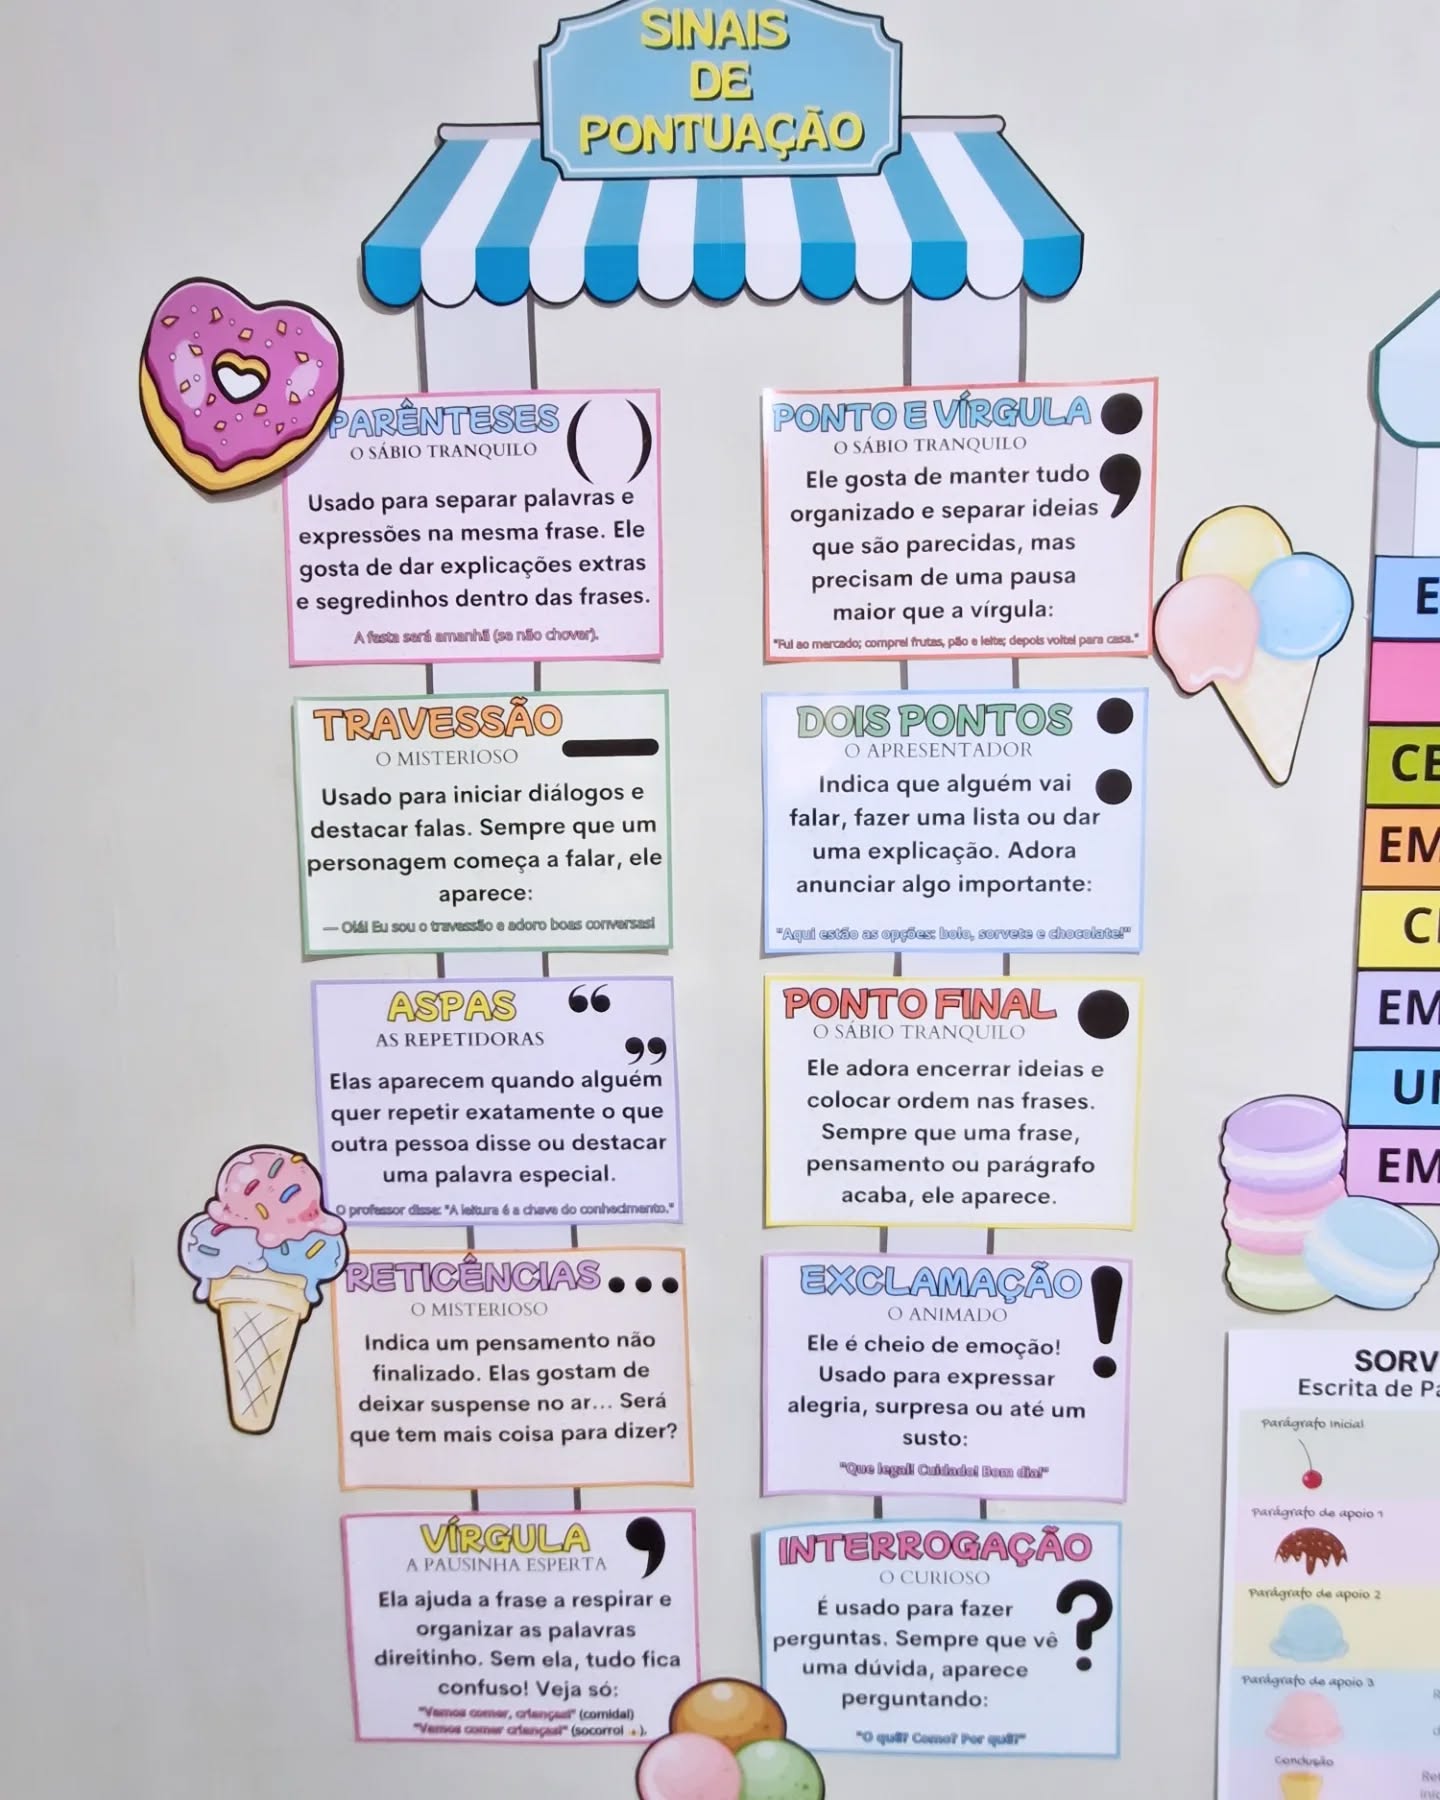 SINAIS
DE
PONTUAÇÃO
PARÊNTESES
O SÁBIO TRANQUILO
( )
Usado para separar palavras e
expressões na mesma frase. Ele
gosta de dar explicações extras
e segredinhos dentro das frases.
A festa será amanhã (se não chover).
TRAVESSÃO
O MISTERIOSO
—
Usado para iniciar diálogos e
destacar falas. Sempre que um
personagem começa a falar, ele
aparece:
— Olá! Eu sou o travessão e adoro boas conversas!
ASPAS
AS REPETIDORAS
“
”
Elas aparecem quando alguém
quer repetir exatamente o que
outra pessoa disse ou destacar
uma palavra especial.
O professor disse: "A leitura é a chave do conhecimento."
RETICÊNCIAS
...
O MISTERIOSO
Indica um pensamento não
finalizado. Elas gostam de
deixar suspense no ar... Será
que tem mais coisa para dizer?
VÍRGULA
,
A PAUSINHA ESPERTA
Ela ajuda a frase a respirar e
organizar as palavras
direitinho. Sem ela, tudo fica
confuso! Veja só:
"Vamos comer, crianças!" (comida!)
"Vamos comer crianças!" (socorro! ).
PONTO E VÍRGULA
;
O SÁBIO TRANQUILO
Ele gosta de manter tudo
organizado e separar ideias
que são parecidas, mas
precisam de uma pausa
maior que a vírgula:
"Fui ao mercado; comprei frutas, pão e leite; depois voltei para casa."
DOIS PONTOS
:
O APRESENTADOR
Indica que alguém vai
falar, fazer uma lista ou dar
uma explicação. Adora
anunciar algo importante:
"Aqui estão as opções: bolo, sorvete e chocolate!"
PONTO FINAL
.
O SÁBIO TRANQUILO
Ele adora encerrar ideias e
colocar ordem nas frases.
Sempre que uma frase,
pensamento ou parágrafo
acaba, ele aparece.
EXCLAMAÇÃO
!
O ANIMADO
Ele é cheio de emoção!
Usado para expressar
alegria, surpresa ou até um
susto:
"Que legal! Cuidado! Bom dia!"
INTERROGAÇÃO
?
O CURIOSO
É usado para fazer
perguntas. Sempre que vê
uma dúvida, aparece
perguntando:
"O quê? Como? Por quê?"
E
CE
EM
EM
EM
SORV
Escrita de Pa
Parágrafo Inicial
Parágrafo de apoio 1
Parágrafo de apoio 2
Parágrafo de apoio 3
Conclusão